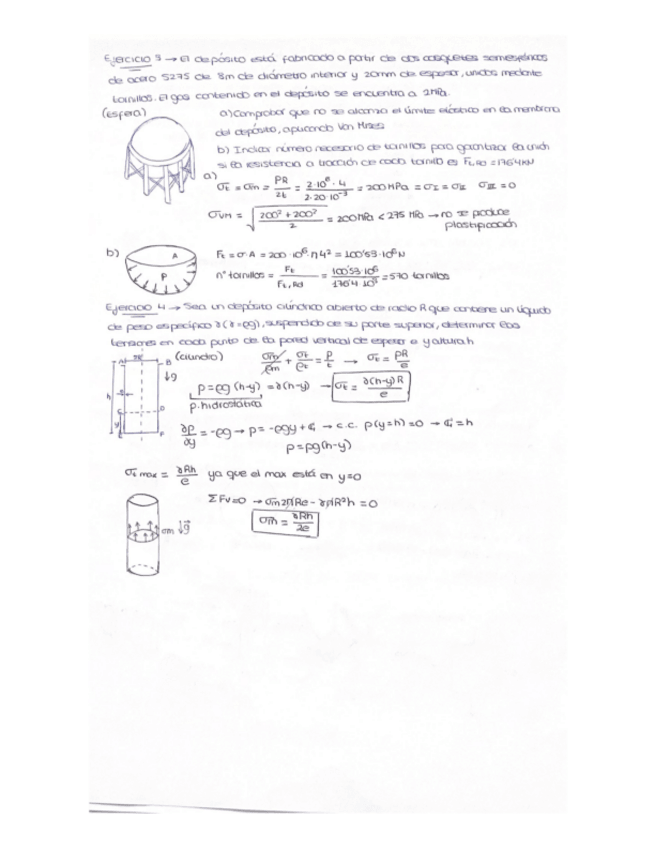 Ejercicio 3 → El depósito está fabricado a partir de dos casquetes semiesféricos
de acero S275 de 8m de diámetro interior y 20mm de espesor, unidos mediante
tornillos. El gas contenido en el depósito se encuentra a 2MPa.
(esfera)
a) Comprobar que no se alcanza el límite elástico en la membrana
del depósito, aplicando Von Mises
b) Indicar número necesario de tornillos para garantizar la unión
si la resistencia a tracción de cada tornillo es Ft,Rd = 176'4 kN
a) σt = σm = PR/2t = 2·10⁶·4/2·20·10⁻³ = 200 MPa = σI = σII σIII = 0
σVM = √(200² + 200²/2) = 200 MPa < 275 MPa → no se produce
plastificación
b) A
P
Ft = σ·A = 200·10⁶·π4² = 100'53·10⁶ N
nº tornillos = Ft/Ft,Rd = 100'53·10⁶/176'4·10³ = 570 tornillos
Ejercicio 4 → Sea un depósito cilíndrico abierto de radio R que contiene un líquido
de peso específico γ (γ = ρg), suspendido de su parte superior, determinar las
tensiones en cada punto de la pared vertical de espesor e y altura h
A 2R B (cilindro)
σm/ρm + σt/ρt = P/t → σt = PR/e
↓g
h
p = ρg(h-y) = γ(h-y) → σt = γ(h-y)R/e
p. hidrostática
C D
y
∂p/∂y = -ρg → p = -ρgy + C1 → c.c. p(y=h) = 0 → C1 = h
p = ρg(h-y)
σt max = γRh/e ya que el max está en y=0
ΣFv=0 → σm2πRe - γπR²h = 0
σm ↓g
σm = γRh/2e